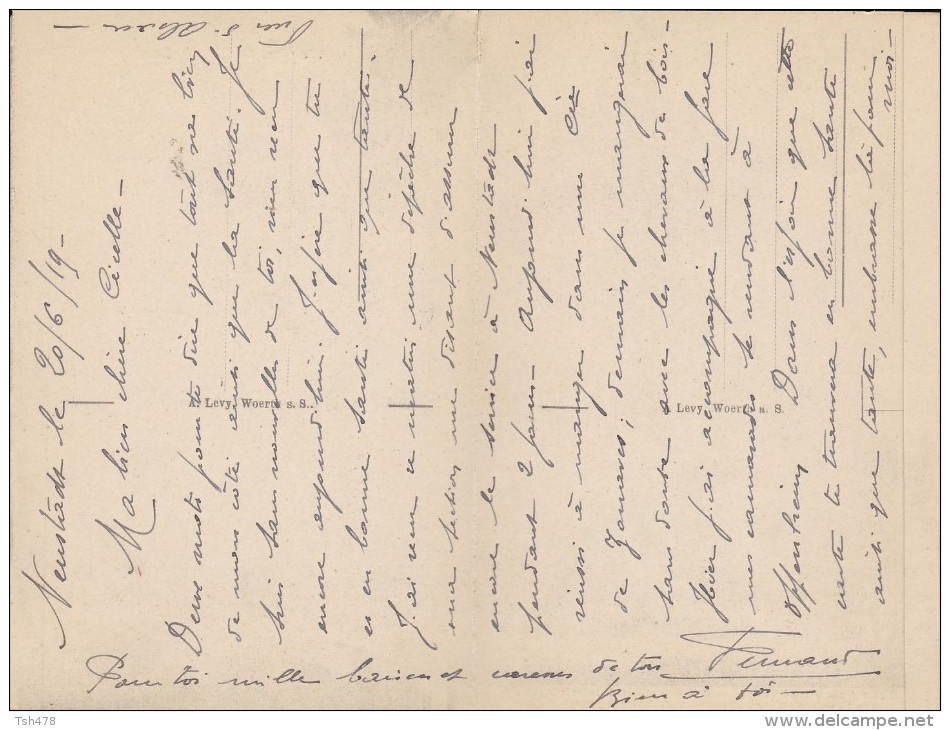 Vues d'Alsace —
Neustadt le 20/6/19 —
Ma bien chère Cécelle —
Deux mots pour te dire que tout va bien
de mon côté ainsi que la santé. Je
suis sans nouvelles de toi, rien reçu
encore aujourd'hui. J'espère que tu
es en bonne santé ainsi que tante.
J'ai reçu ce matin une dépêche de
ma section me disant d'assurer
encore le service à Neustadt
pendant 2 jours — Aujourd'hui j'ai
réussi à manger dans une Cie
de Zouaves ; demain je mangerai
sans doute avec les chevaux de bois —
Hier j'ai accompagné à la gare
mes camarades se rendant à
Offenheim Dans l'espoir que cette
carte te trouvera en bonne santé
ainsi que tante, embrasse là pour
moi —
Pour toi mille baisers et caresses de ton Fernand
Bien à toi —
A. Levy, Woerth s. S.
A. Levy, Woerth a. S.
Tsh478
www.delcampe.net